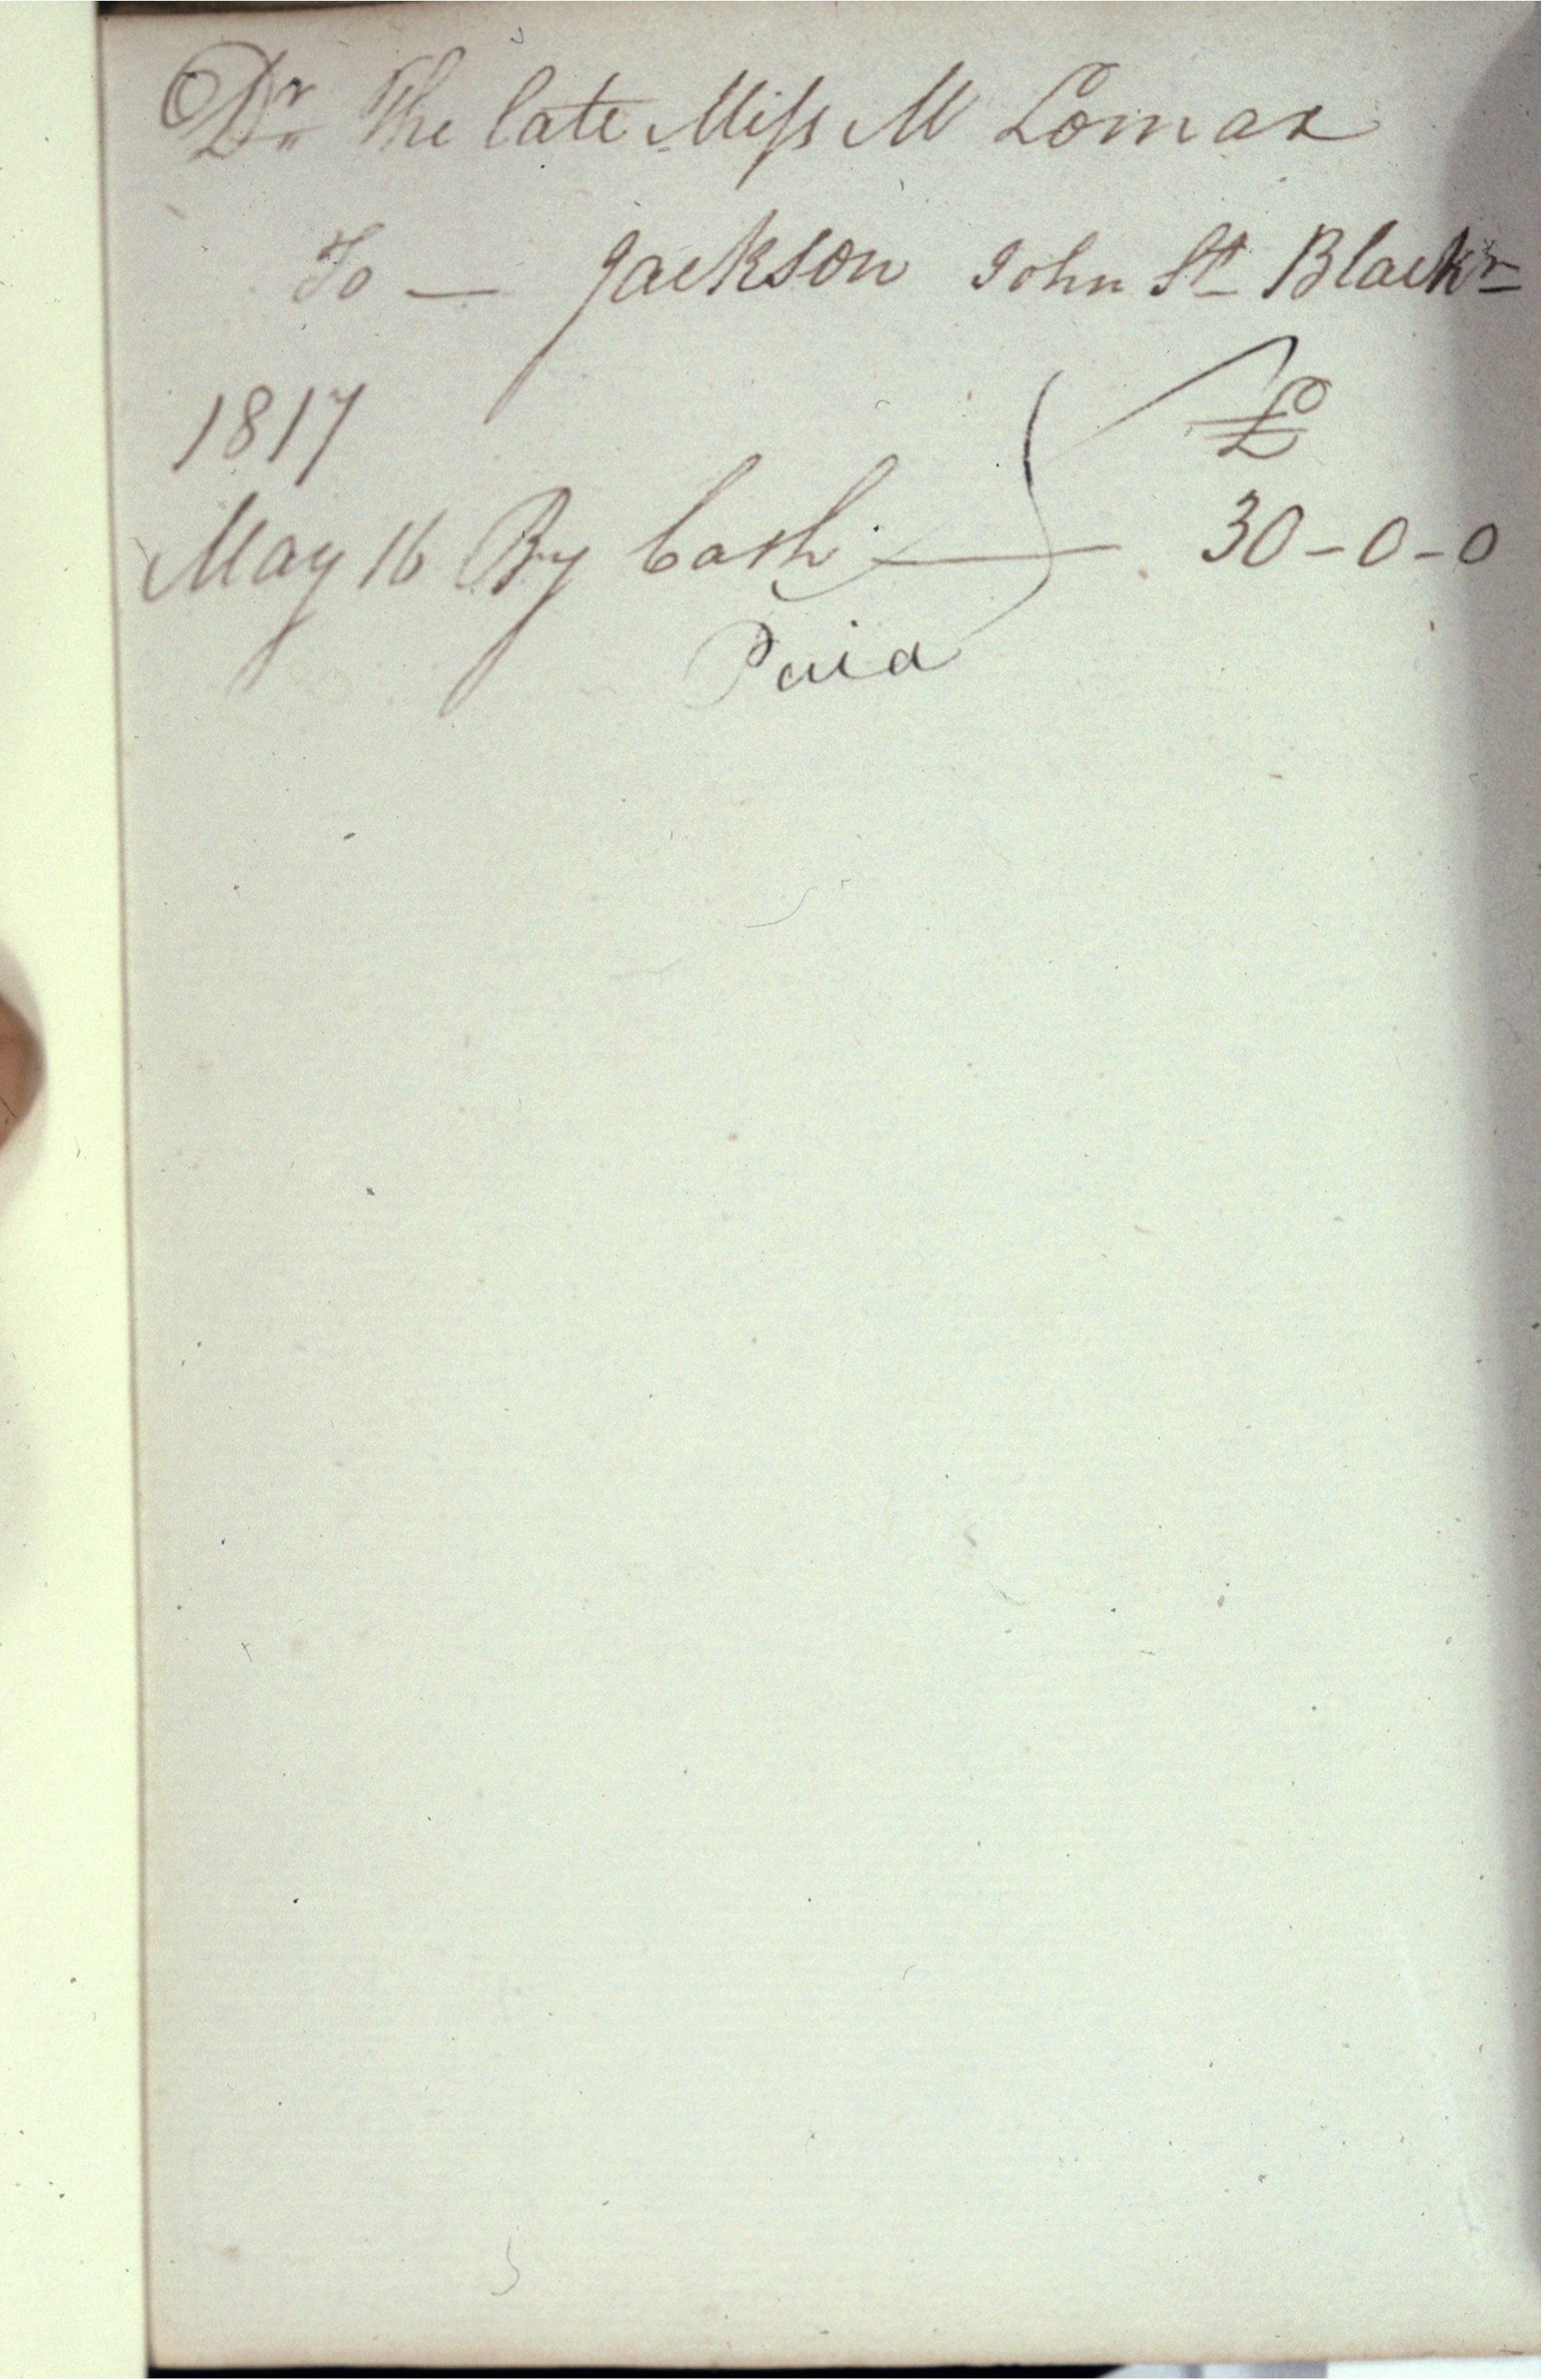 Dr The late Miſs M Lomax
To — Jackson John St Blackn
1817 £
May 16 By Cash — 30-0-0
Paid